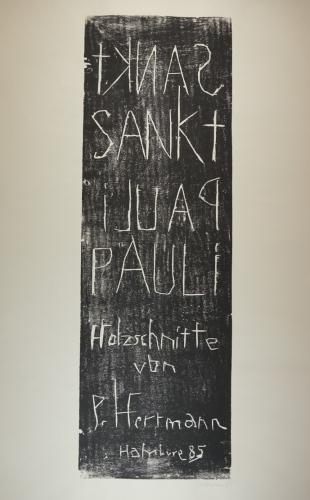 SANKt
SANKt
PAULi
PAULi
Holzschnitte
von
P. Herrmann
Hamburg 85